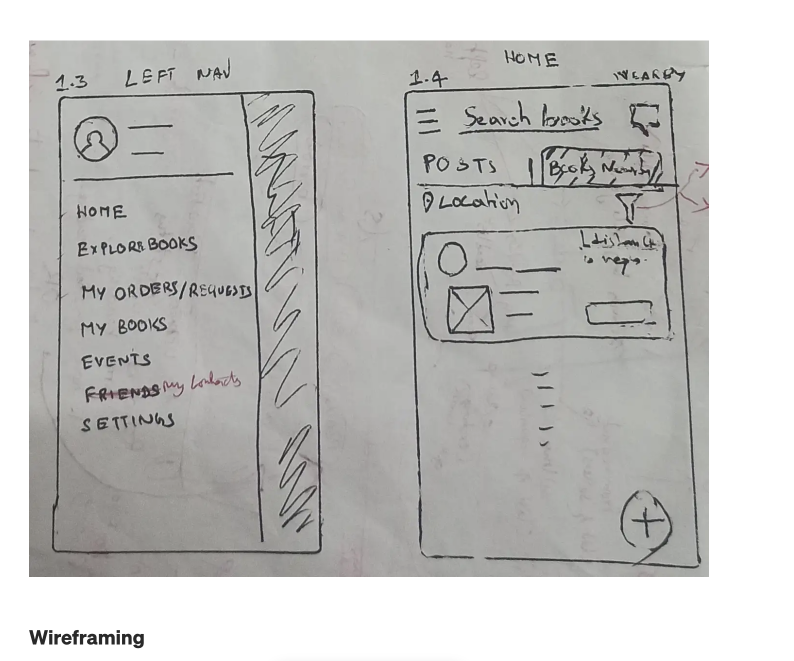 1.3 LEFT NAV
HOME
EXPLORE BOOKS
MY ORDERS/REQUESTS
MY BOOKS
EVENTS
FRIENDS My Contacts
SETTINGS
HOME
1.4 NEARBY
Search books
POSTS | Books Nearby
Location
distance
Wireframing